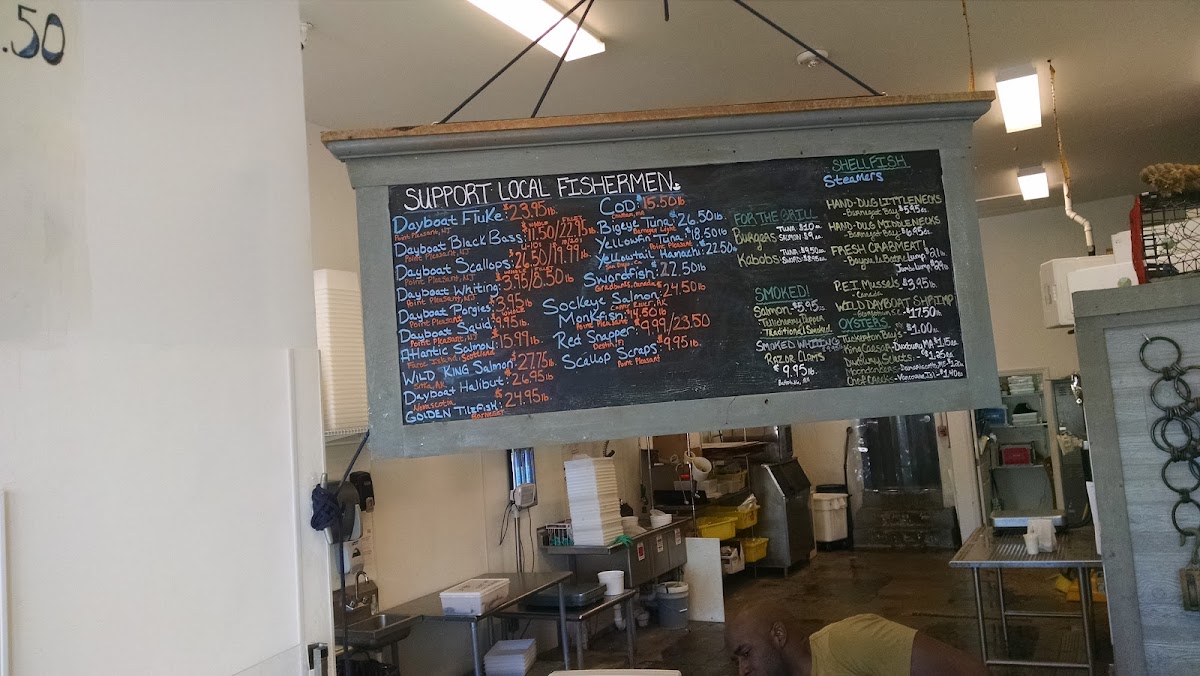 .50
SUPPORT LOCAL FISHERMEN
Dayboat Fluke: $23.95 lb.
Point Pleasant, NJ
WHOLE FILET
Dayboat Black Bass: $11.50/22.95 lb.
Point Pleasant, NJ
U-10's 10/20's
Dayboat Scallops: $26.50/19.99 lb.
Point Pleasant, NJ
WHOLE FILET
Dayboat Whiting: $3.95/8.50 lb.
Point Pleasant, NJ
Dayboat Porgies: $3.95 lb
Point Pleasant WHOLE
Dayboat Squid: $9.95 lb.
Point Pleasant, NJ
Atlantic Salmon: $15.99 lb.
Faroe Island, Scottland
WILD KING Salmon: $27.75 lb.
Sitka, AK
Dayboat Halibut: $26.95 lb
Novascotia
GOLDEN TILEFISH: $24.95 lb.
Barnegat
Cod: $15.50 lb
Chatham, MA
Bigeye Tuna: $26.50 lb.
Barnegat Light
Yellowfin Tuna: $18.50 lb
Point Pleasant
Yellowtail Hamachi: $22.50
San Diego, CA
Swordfish: $22.50 lb
Grand Banks, Canada
Sockeye Salmon: $24.50 lb
Copper River, AK
Monkfish: $14.50 lb
Point Pleasant
Red Snapper: $9.99/23.50
Destin, Fl
Scallop Scraps: $9.95 lb.
Point Pleasant
FOR THE GRILL
Burgers TUNA $10 ea.
SALMON $9 ea.
Kabobs: TUNA $9.50 ea.
SWORD $8.95 ea.
SMOKED!
Salmon - $5.95
Tellicherry Pepper
Traditional Smoked
SMOKED WHITING
RAZOR CLAMS
$9.95 lb.
SHELLFISH
Steamers
HAND-DUG LITTLENECKS
Barnegat Bay $5.95
HAND-DUG MIDDLENECKS
Barnegat Bay $6.95
FRESH CRABMEAT!
Lump $21 lb
Jumbo Lump
P.E.I MUSSELS $3.95 lb.
Canada
WILD DAYBOAT SHRIMP
Georgetown, S.C. $17.50 lb
OYSTERS
$1.00 ea.
Duxbury, MA $1.15 ea
$1.25 ea
Moondancers Damariscotta, ME $1.2
Vancouver Isl - $1.40 ea